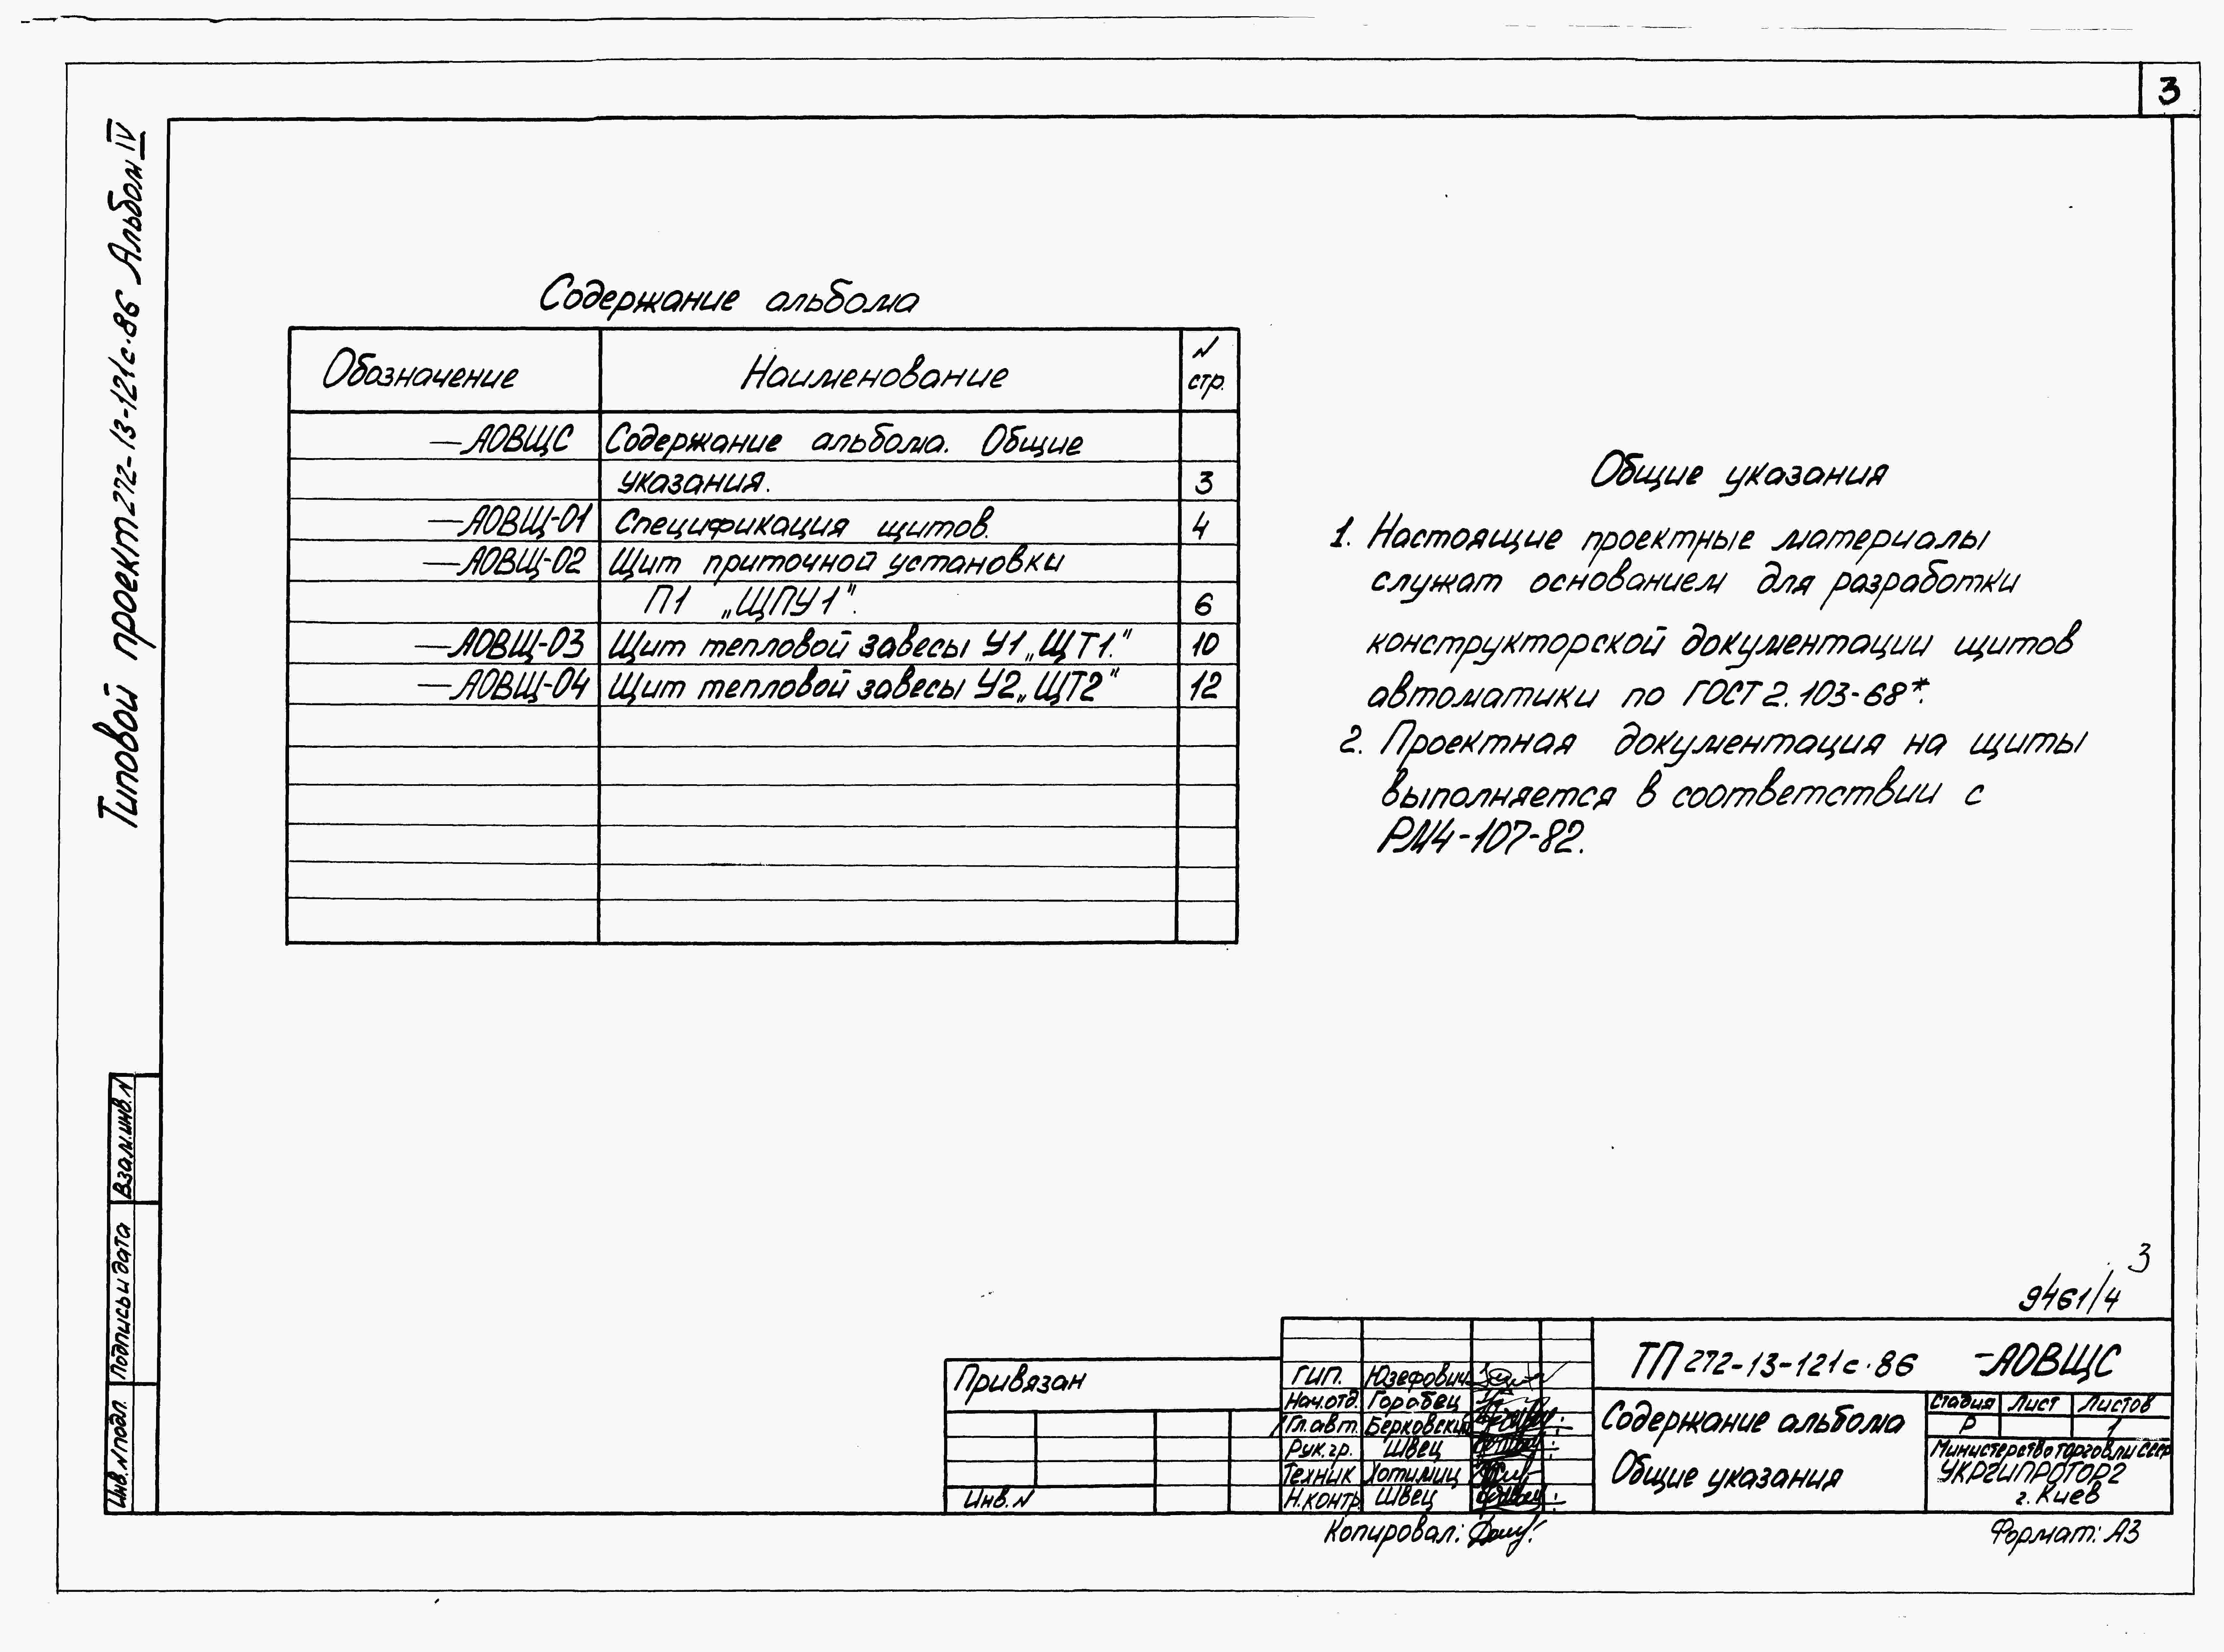 3
Типовой проект 272-13-121с·86 Альбом IV
Содержание альбома
Обозначение Наименование N стр.
—АОВЩС Содержание альбома. Общие
указания. 3
—АОВЩ-01 Спецификация щитов. 4
—АОВЩ-02 Щит приточной установки
П1 „ЩПУ1". 6
—АОВЩ-03 Щит тепловой завесы У1 „ЩТ1." 10
—АОВЩ-04 Щит тепловой завесы У2 „ЩТ2" 12
Общие указания
1. Настоящие проектные материалы
служат основанием для разработки
конструкторской документации щитов
автоматики по ГОСТ 2.103-68*.
2. Проектная документация на щиты
выполняется в соответствии с
РМ4-107-82.
Взам.инв.N
Подпись и дата
Инв.N подл.
3
9461/4
Привязан
Инв.N
ГИП. Юзефович
Нач.отд. Горобец
Гл.авт. Берковский
Рук.гр. Швец
Техник Хотимиц
Н.контр. Швец
ТП 272-13-121с·86 -АОВЩС
Содержание альбома
Общие указания
Стадия Лист Листов
Р 1
Министерство торговли СССР
УКРГИПРОТОРГ
г. Киев
Копировал:
Формат: А3